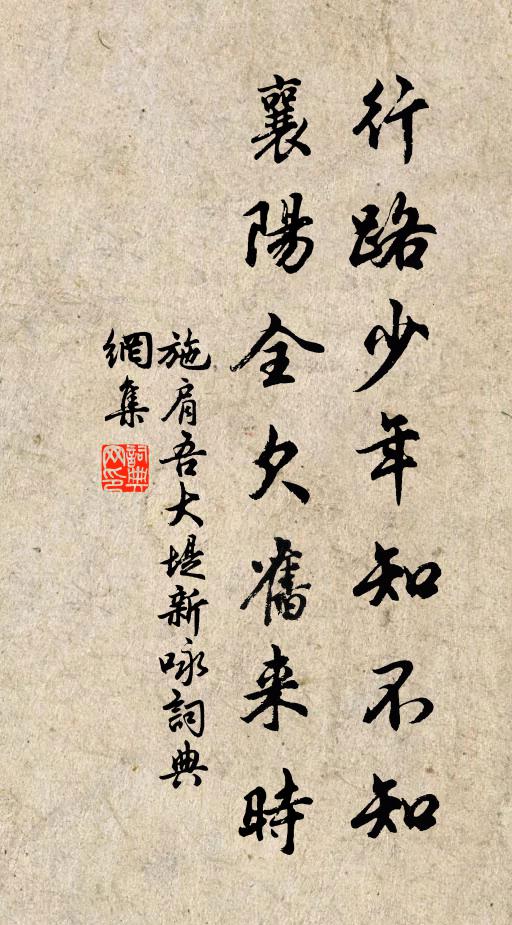 行路少年知不知
襄陽全欠舊来時
施肩吾大堤新咏詞典
網集
詞典
网印